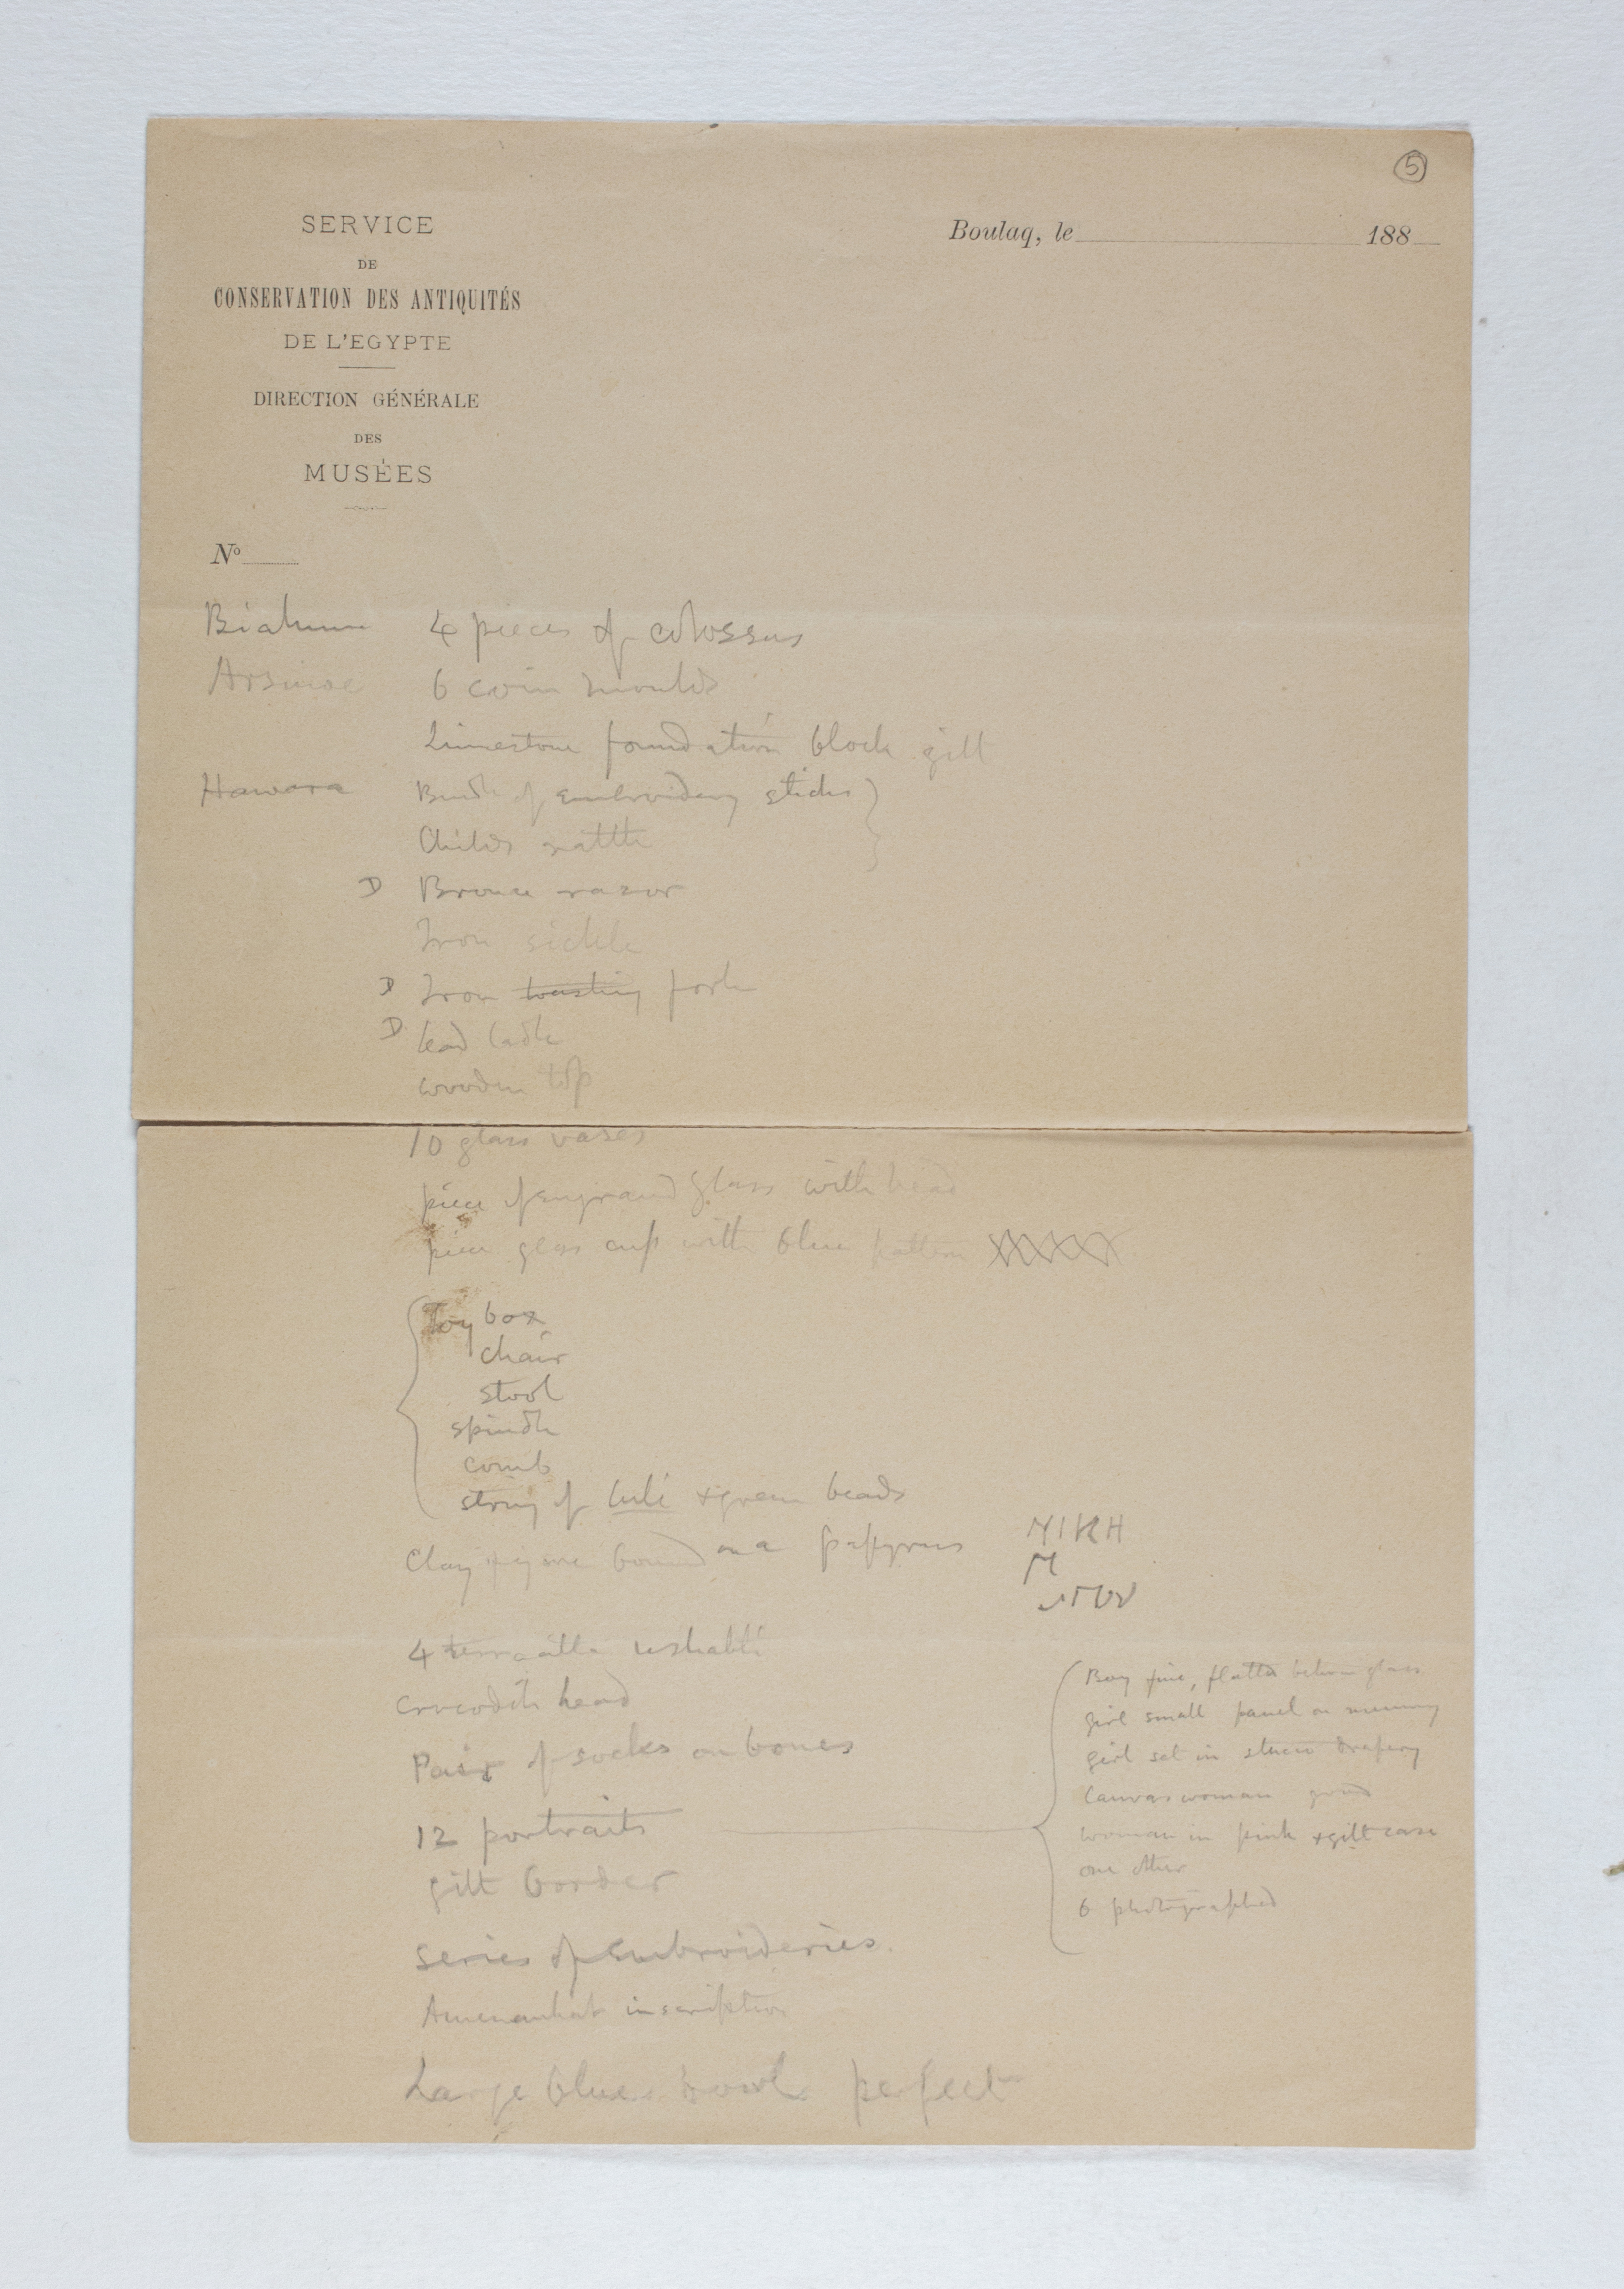 5
SERVICE
DE
CONSERVATION DES ANTIQUITÉS
DE L'EGYPTE
DIRECTION GÉNÉRALE
DES
MUSÉES
Boulaq, le 188
Nº
Biahmu 4 pieces of colossus
Arsinoe 6 coin moulds
Limestone foundation block gilt
Hawara Bundle of embroidery sticks
Childs rattle
D Bronze razor
Iron sickle
D Iron toasting fork
D lead ladle
wooden top
10 glass vases
piece of engraved glass with head
piece glass cup with blue pattern
Toy box
chair
stool
spindle
comb
string of + green beads
Clay bound on a papyrus
4 terracotta ushabti
crocodile head
Pair of socks on bones
12 portraits
gilt border
series of embroideries.
Amenemhat inscription
Large blue bowl perfect
ΝΙΚΗ
Boy fine, between glass
girl small panel on mummy
girl set in stucco drapery
Canvas woman good
woman in pink + gilt case
one other
6 photographed